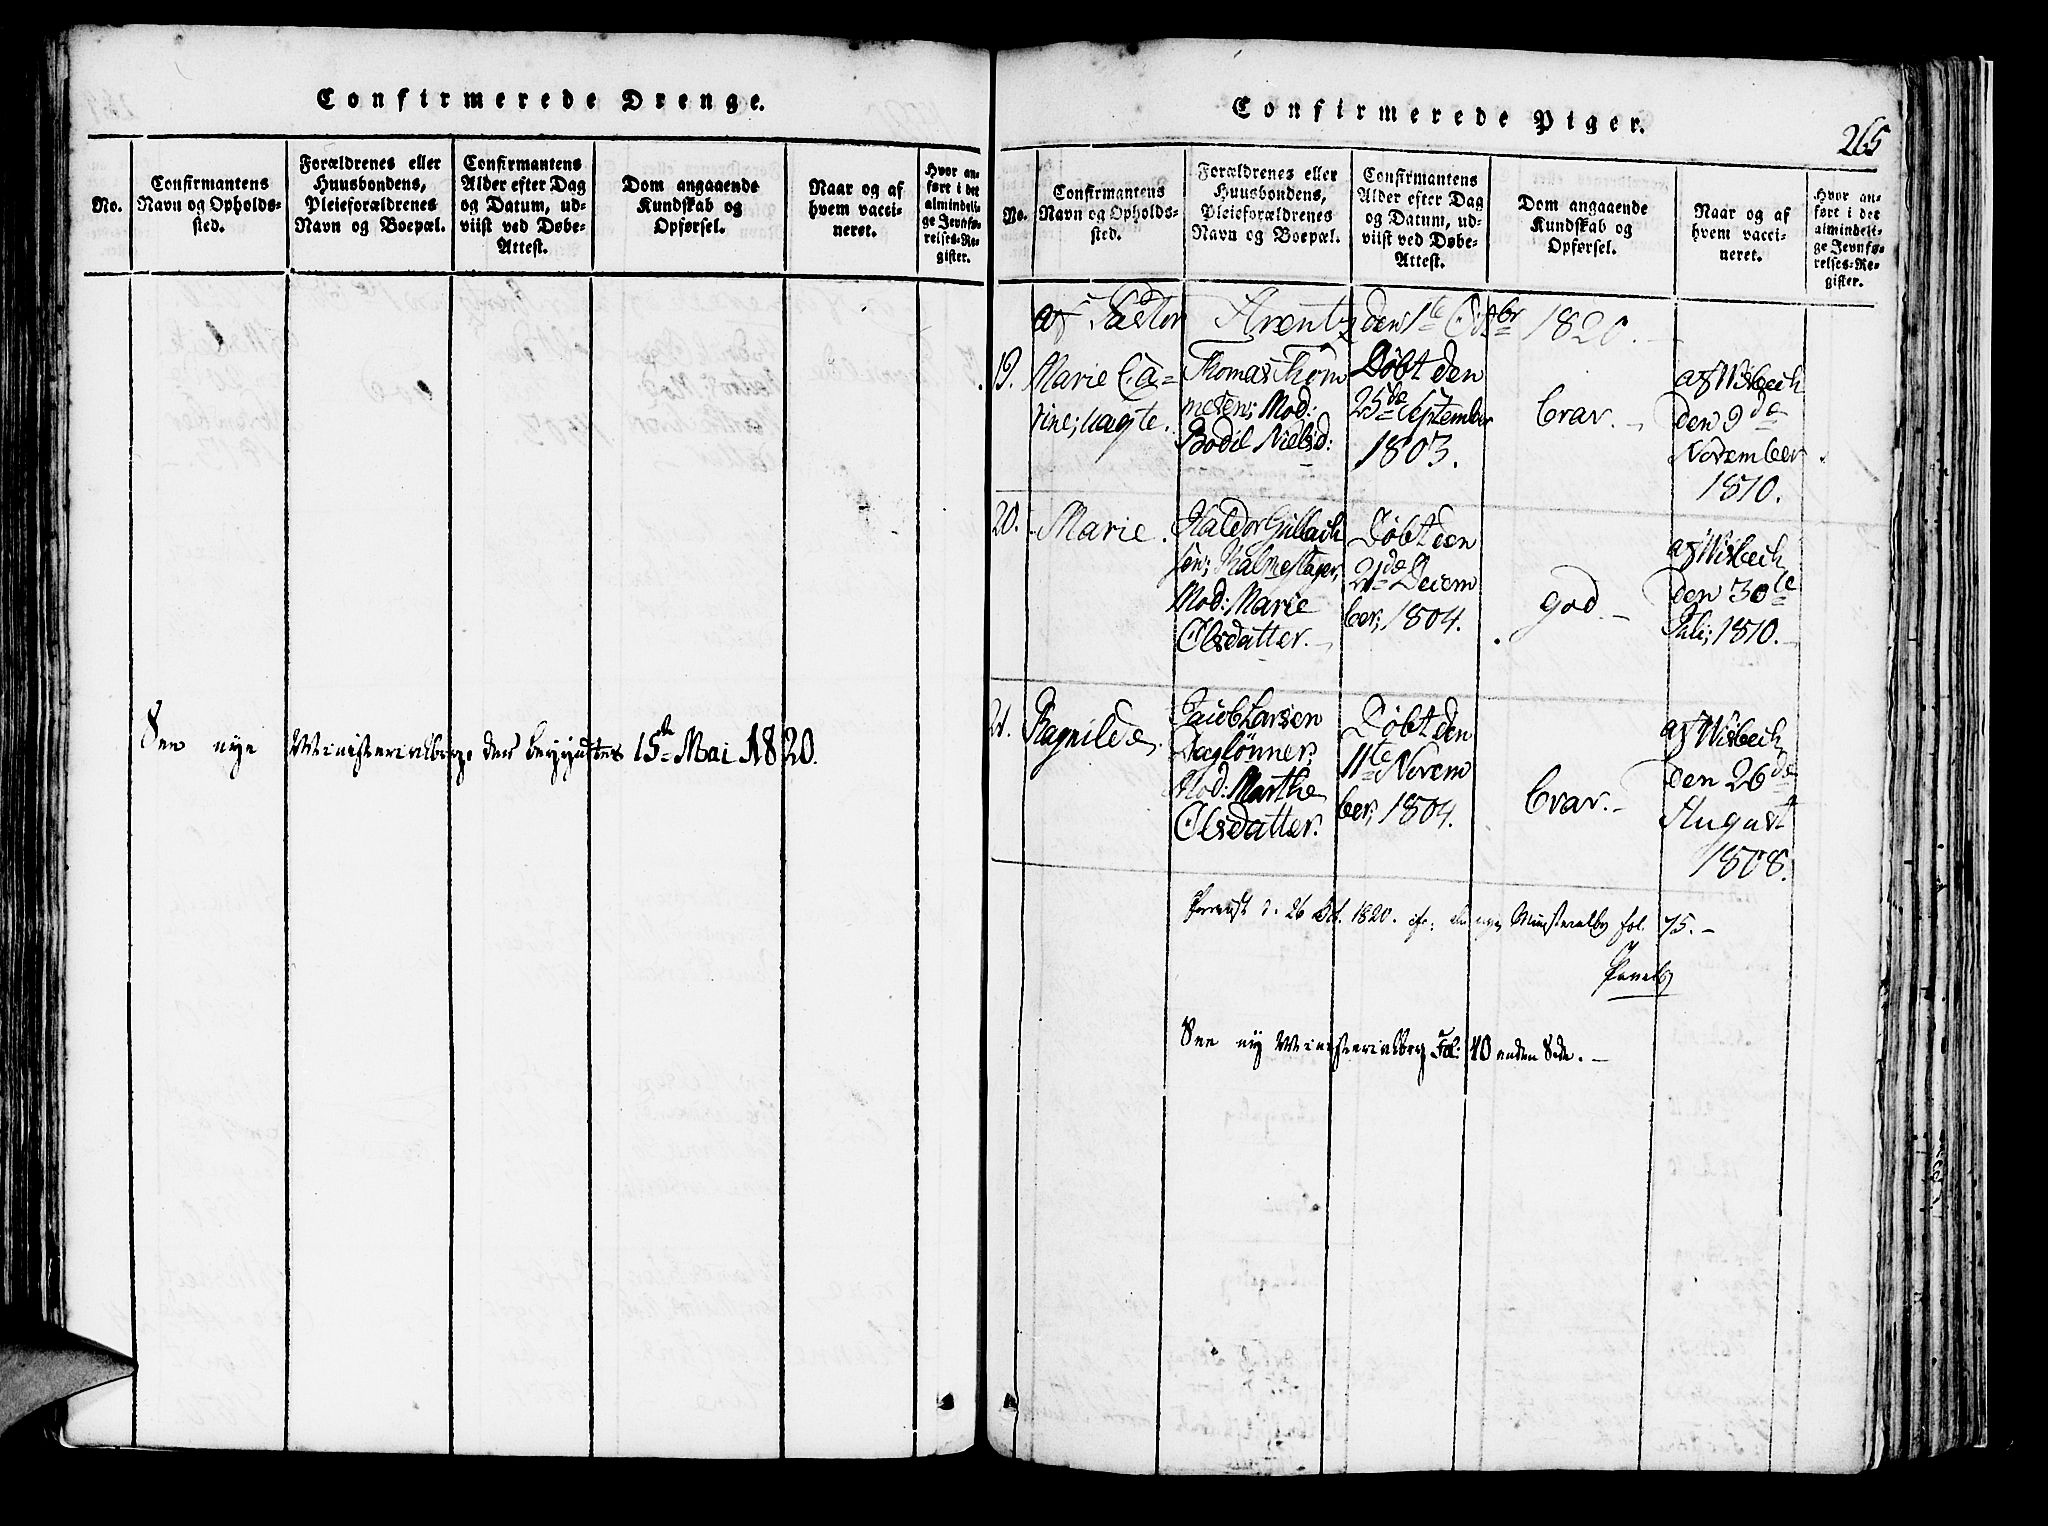 Confirmerede Drenge.
No.
Confirmantens
Navn og Opholds-
sted.
Forældrenes eller
Huusbondens,
Pleieforældrenes
Navn og Boepæl.
Confirmantens
Alder efter Dag
og Datum, ud-
viist ved Døbe-
Attest.
Dom angaaende
Kundskab og
Opførsel.
Naar og af
hvem vacci-
neret.
Hvor an-
ført i det
almindeli-
ge Jevnfø-
relses-Re-
gister.
See nye Ministerialbog, der begyndtes 15de Mai 1820.
Confirmerede Piger.
265
No.
Confirmantens
Navn og Opholds-
sted.
Forældrenes eller
Huusbondens,
Pleieforældrenes
Navn og Boepæl.
Confirmantens
Alder efter Dag
og Datum, ud-
viist ved Døbe-
Attest.
Dom angaaende
Kundskab og
Opførsel.
Naar og af
hvem vacci-
neret.
Hvor an-
ført i det
almindeli-
ge Jevnfø-
relses-Re-
gister.
af Pastor Arentz den 1te Octbr 1820.
19.
Marie Ca=
rine; uægte.
Thomas Thom
mesen; Mod:
Bodil Nielsd:
Døbt den
25de September
1803.
brav.
af Wisbech
den 9de
November
1810.
20.
Marie.
Haldor Gullach
sen;
Mod: Marie
Olsdatter.
Døbt den
21de Decem
ber; 1804.
god.
af Wisbech
den 30te
Juli; 1810.
21.
Ragnilde.
Jacob Larsen
Daglønner;
Mod: Marthe
Olsdatter.
Døbt den
11te Novem
ber; 1804.
brav.
af Wisbech
den 26de
August
1808.
d. 26 Oct. 1820. cfr: den nye Ministerialbog fol. 75.
See ny Ministerialbog Fol: 40 anden Side.